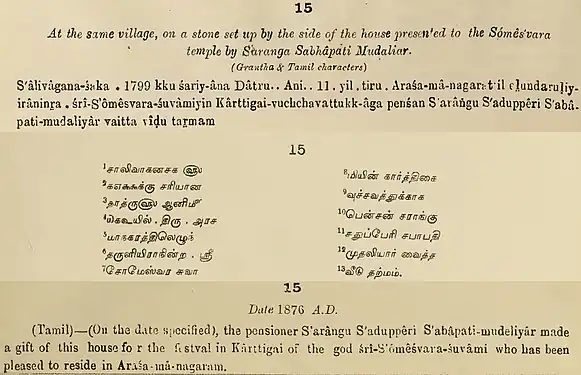 15
At the same village, on a stone set up by the side of the house presented to the Sómês'vara
temple by S'áranga Sabhápati Mudaliar.
(Grantha & Tamil characters)
S'âlivâgana-śaka . 1799 kku śariy-âna Dâtru.. Ani.. 11. yil. tiru. Araśa-mâ-nagarat-til eḷundaruḷiy-
irâninra . śrî-S'ômêsvara-śuvâmiyin Kârttigai-vuchchavattukk-âga penśan S'arângu S'aduppêri S'abâ-
pati-mudaliyâr vaitta vîḍu tarmam
15
1சாலிவாகனசக
2௧௭௯௯க்கு சரியான
3தாத்ரு ஆனி
4௧௧உயில் . திரு . அரச
5மாநகரத்திலெழுந்
6தருளியிராநின்ற . ஸ்ரீ
7சோமேஸ்வர சுவா
8மியின் கார்த்திகை
9வுச்சவத்துக்காக
10பென்சன் சராங்கு
11சதுப்பேரி சபாபதி
12முதலியார் வைத்த
13வீடு தற்மம்.
15
Date 1876 A.D.
(Tamil)—(On the date specified), the pensioner S'arângu S'aduppêri S'abâpati-mudeliyâr made
a gift of this house for the festval in Kârttigai of the god śri-S'ômêsvara-śuvâmi who has been
pleased to reside in Araśa-mâ-nagaram.